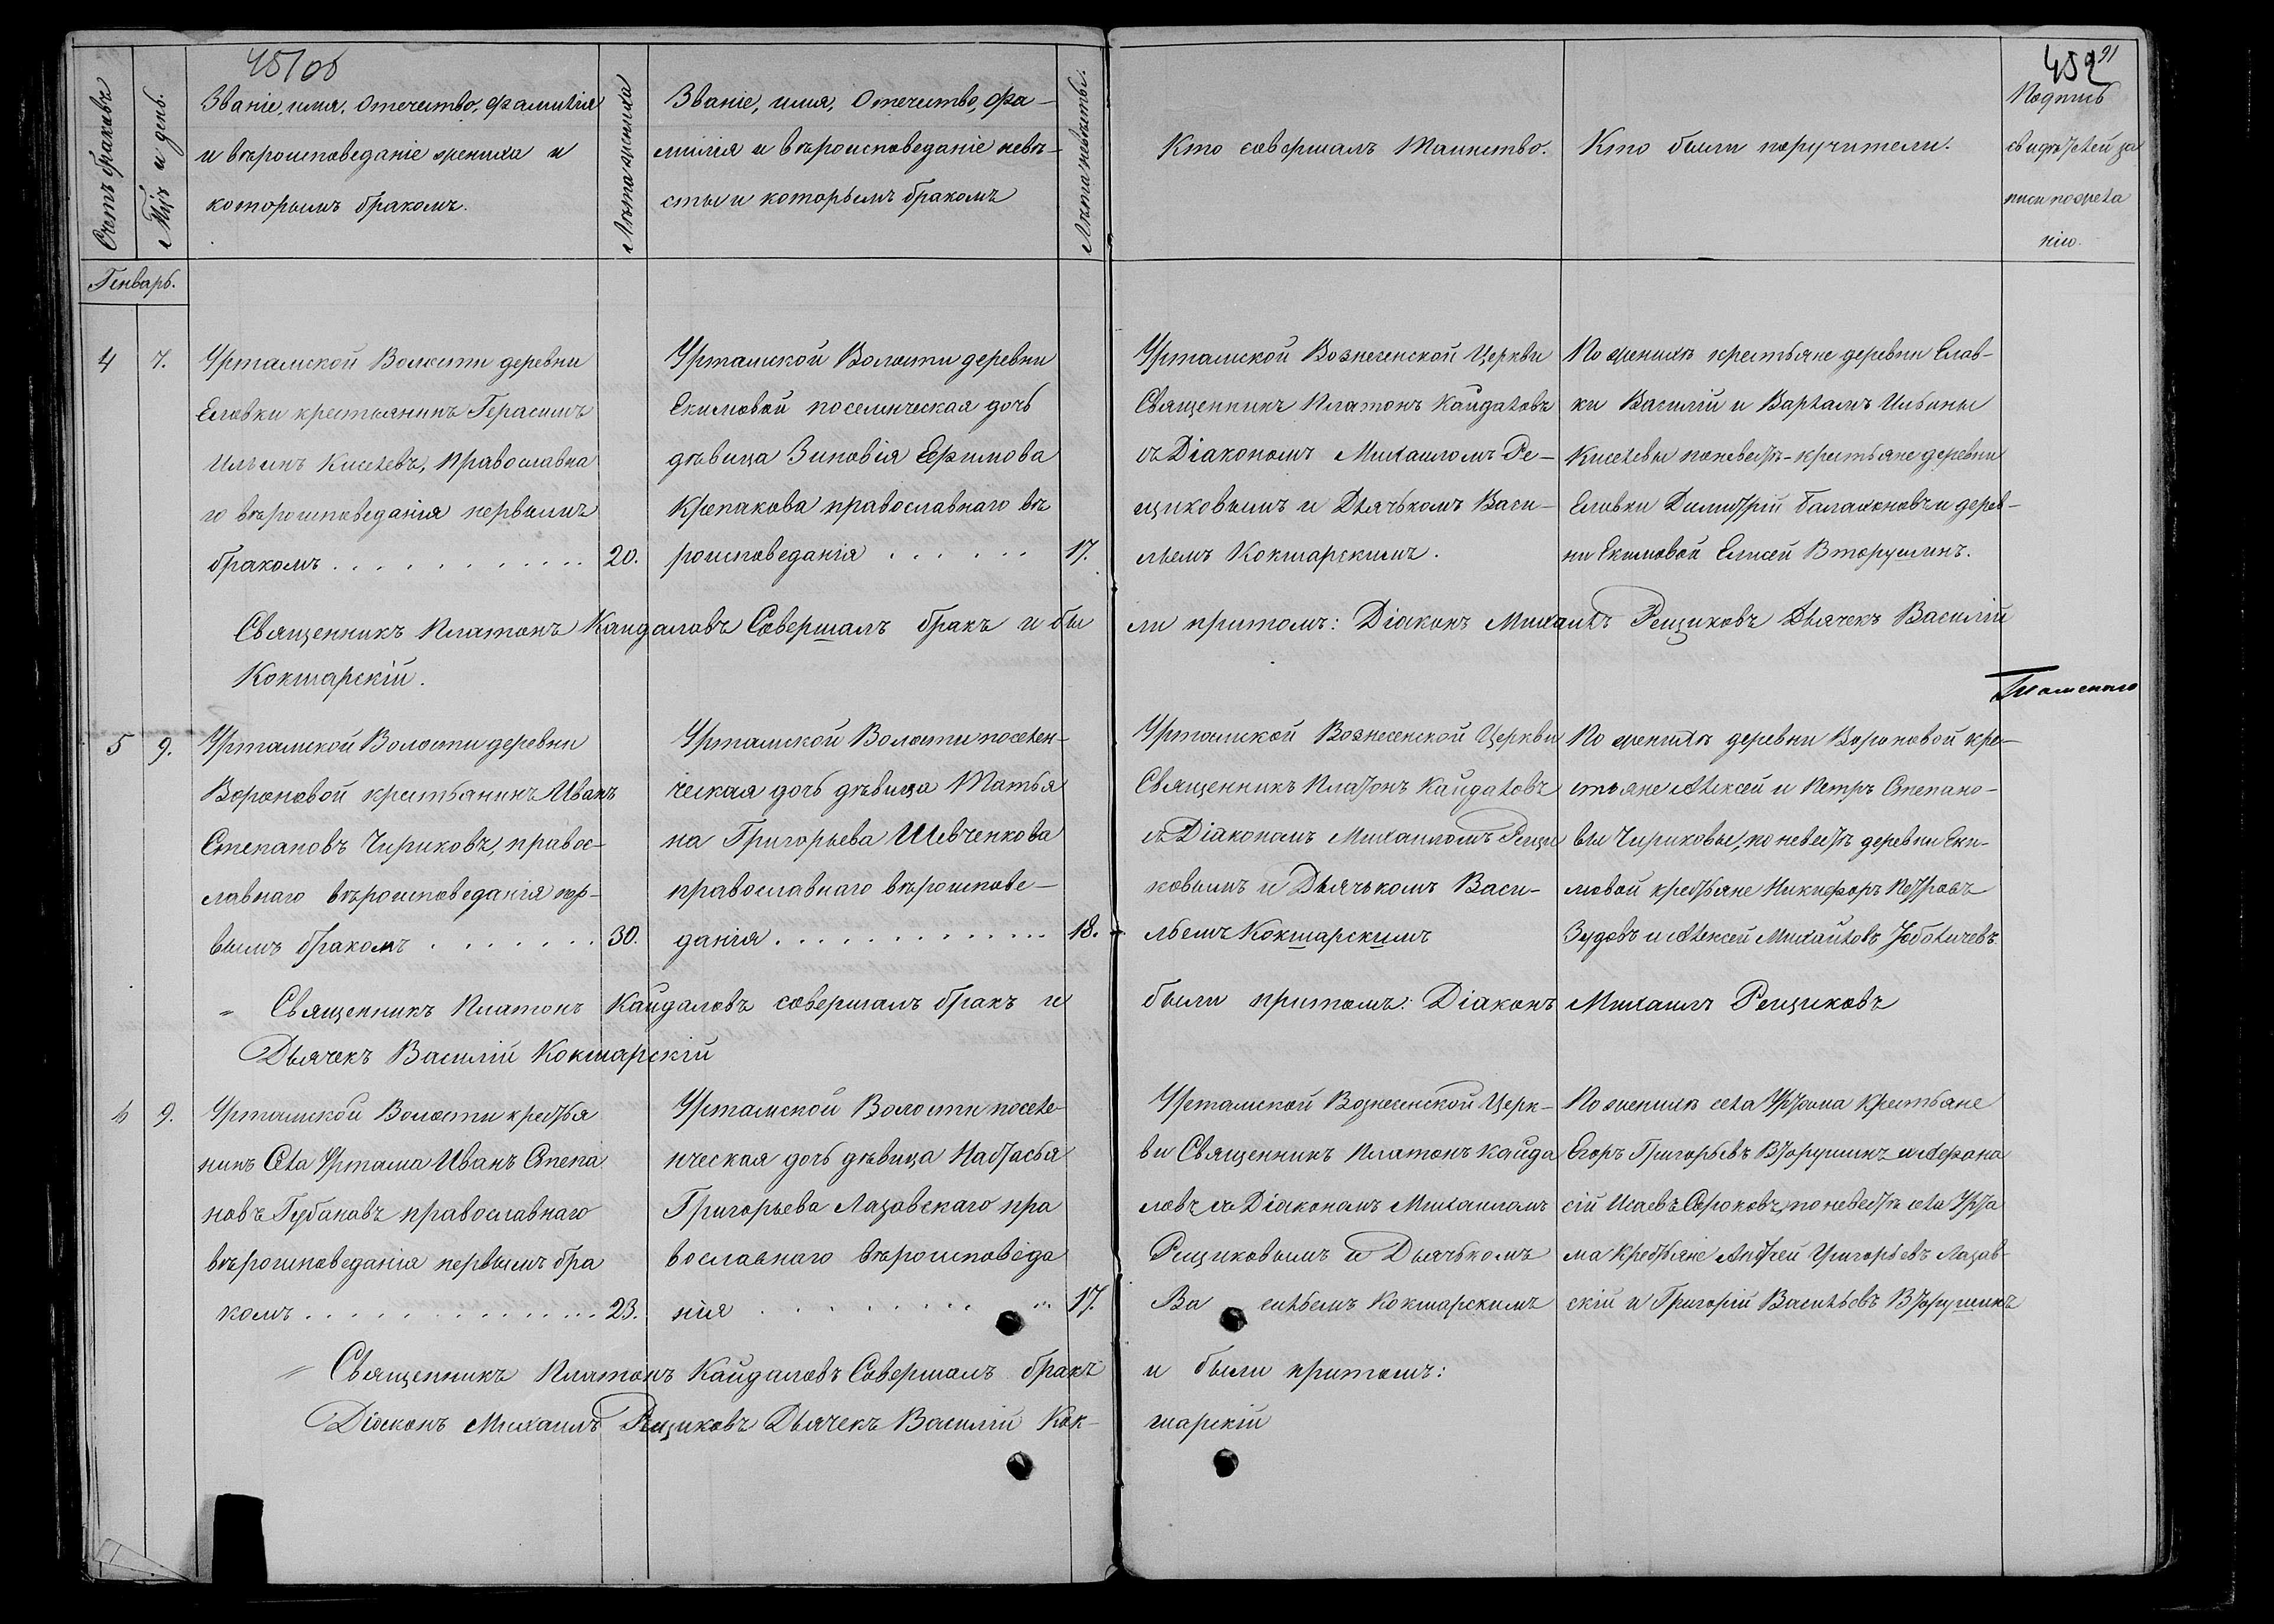 451об
452
91
Счетъ браковъ
Мцъ и день.
Званіе, имя, Отечество, фамилія
и вѣроисповеданіе жениха и
которымъ бракомъ.
Лѣта жениха
Званіе, имя, Отечество, фа-
милія и вѣроисповеданіе невѣ-
сты и которымъ бракомъ
Лѣта невѣсты.
Кто совершалъ Таинство.
Кто были поручители.
Подпись
свидѣтелей за
писи по жела
нію.
Генварь.
4
7.
Уртамской Волости деревни
Еловки крестьянинъ Герасимъ
Ильинъ Киселевъ, православна
го вѣроисповеданія первымъ
бракомъ . . . . . . . . . . . 20.
Уртамской Волости деревни
Екимовой поселенческая дочь
дѣвица Зиновія Ефимова
Крепакова православнаго вѣ
роисповеданія . . . . . . 17.
Уртамской Вознесенской Церкви
Священникъ Платонъ Кайдаловъ
съ Діакономъ Михаиломъ Ре-
щиковымъ и Дьячькомъ Васи-
льемъ Кокшарскимъ.
По женихѣ крестьяне деревни Елов-
ки Василій и Варламъ Ильины
Киселевы по невестѣ - крестьяне деревни
Еловки Димитрій Балахновъ и дерев-
ни Екимовой Елисей Вторушинъ.
Священникъ Платонъ Кайдаловъ Совершалъ бракъ и бы
ли притомъ: Діаконъ Михаилъ Рещиковъ Дьячекъ Василій
Кокшарскій.
Томскаго
5
9.
Уртамской Волости деревни
Вороновой крестьянинъ Иванъ
Степановъ Чириковъ, правос-
лавнаго вѣроисповеданія пер-
вымъ бракомъ . . . . . . . 30.
Уртамской Волости поселен-
ческая дочь дѣвица Татья
на Григорьева Шевченкова
православнаго вѣроисповe-
данія . . . . . . . . . . . . . 18.
Уртамской Вознесенской Церкви
Священникъ Платонъ Кайдаловъ
съ Діакономъ Михаиломъ Рещи
ковымъ и Дьячькомъ Васи-
льемъ Кокшарскимъ
По женихѣ деревни Вороновой кре-
стьяне Алексей и Петръ Степано-
вы Чириковы, по невестѣ деревни Еки-
мовой крестьяне Никифоръ Петровъ
Зудовъ и Алексей Михайловъ
" Священникъ Платонъ Кайдаловъ совершалъ бракъ и
были притомъ: Діаконъ Михаилъ Рещиковъ
Дьячекъ Василій Кокшарскій
6
9.
Уртамской Волости крестья
нинъ Села Уртама Иванъ Степа
новъ Губановъ православнаго
вѣроисповеданія первымъ бра
комъ . . . . . . . . . . . . . 23.
Уртамской Волости поселе-
нческая дочь дѣвица Настасья
Григорьева Лазовскаго пра
вославнаго вѣроисповѣда
нія . . . . . . . . . 17.
Уртамской Вознесенской Церк-
ви Священникъ Платонъ Кайда
ловъ съ Діакономъ Михаиломъ
Рещиковымъ и Дьячькомъ
Ва сильемъ Кокшарскимъ
По женихѣ села Уртама Крестьяне
Егоръ Григорьевъ Вторушинъ и Афана
сій Исаевъ Сороковъ, по невестѣ села Урта
ма Крестьяне Андрей Григорьевъ Лазов-
скій и Григорій Васильевъ Вторушинъ
" Священникъ Платонъ Кайдаловъ Совершалъ бракъ
и были притомъ:
Діаконъ Михаилъ Рещиковъ Дьячекъ Василій Кок-
шарскій